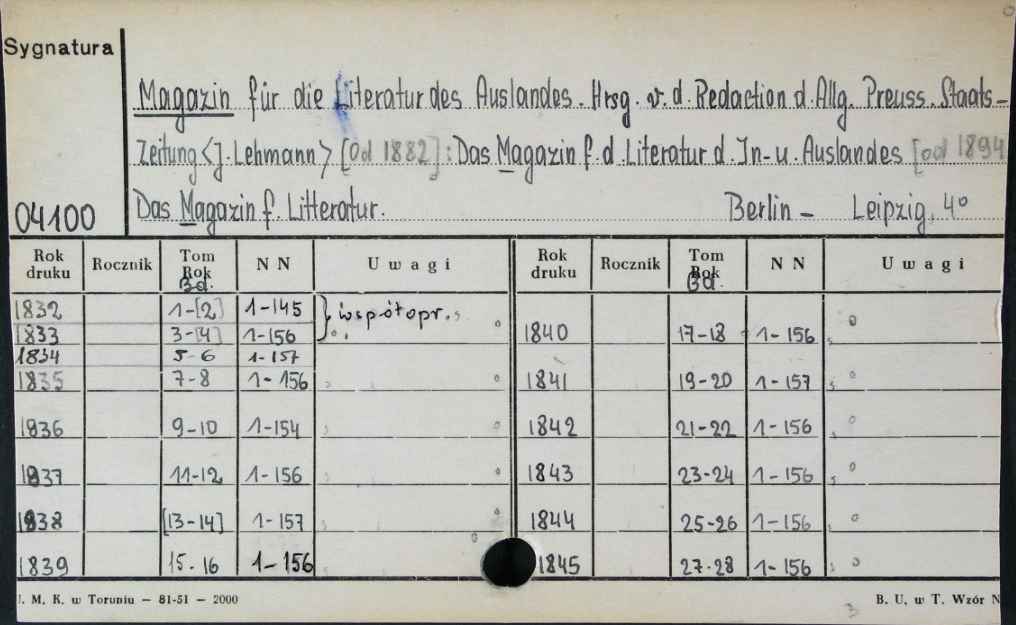 Sygnatura
Magazin für die Literatur des Auslandes. Hrsg. v. d. Redaction d. Allg. Preuss. Staats-
Zeitung <J. Lehmann> [Od 1882]: Das Magazin f. d. Literatur d. In- u. Auslandes [od 1894
04100 Das Magazin f. Litteratur. Berlin - Leipzig, 4°
Rok druku Rocznik Tom Rok Bd. NN Uwagi Rok druku Rocznik Tom Rok Bd. NN Uwagi
1832 1-[2] 1-145 } współopr.
1833 3-[4] 1-156 1840 17-18 1-156
1834 5-6 1-157
1835 7-8 1-156 1841 19-20 1-157
1836 9-10 1-154 1842 21-22 1-156
1837 11-12 1-156 1843 23-24 1-156
1838 [13-14] 1-157 1844 25-26 1-156
1839 15-16 1-156 1845 27-28 1-156
J. M. K. w Toruniu — 81-51 — 2000 3 B. U. w T. Wzór N